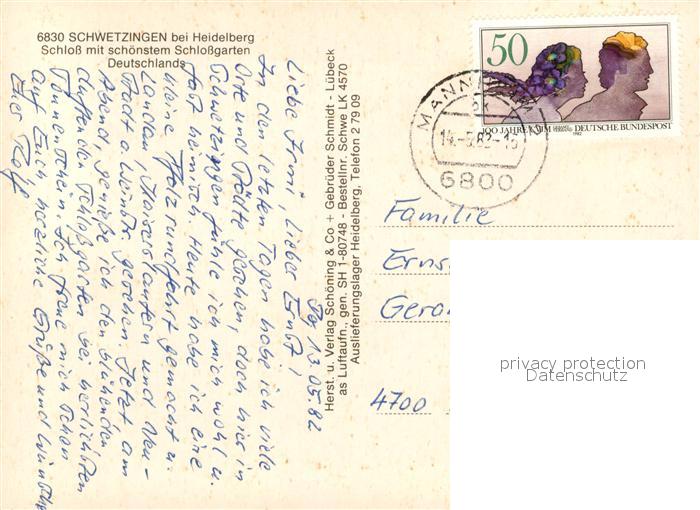 6830 SCHWETZINGEN bei Heidelberg
Schloß mit schönstem Schloßgarten
Deutschlands
Herst. u. Verlag Schöning & Co + Gebrüder Schmidt - Lübeck
as Luftaufn., gen. SH 1-80748 - Bestellnr. Schwe LK 4570
Auslieferungslager Heidelberg, Telefon 2 79 09
13.05.82
Liebe Irmi, Lieber Ernst!
In den letzten Tagen habe ich viele
Orte und Städte gesehen, doch hier in
Schwetzingen fühle ich mich wohl u.
fast heimisch. Heute habe ich eine
kleine Pfalzrundfahrt gemacht u.
Landau, Kaiserslautern und Neu-
stadt a. Weinstr. gesehen. Jetzt am
Abend genieße ich den blühenden
duftenden Schloßgarten bei herrlichstem
Sonnenschein. Ich freue mich schon
auf Euch herzliche Grüße und Wünsche
Euer Rolf
50
100 JAHRE DEUTSCHE BUNDESPOST
1982
MANNHEIM
14.-5.82-15
6800
Familie
Erns
Gero
4700
privacy protection
Datenschutz